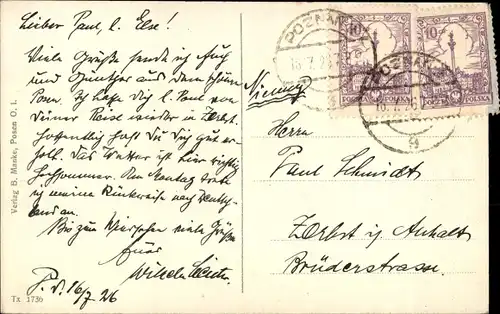 Lieber Paul, l. Else!
Viele Grüße sende ich Euch
und Günther aus dem schönen
Posen. Ich hoffe Dich l. Paul von
Deiner Reise wieder in Zerbst.
Hoffentlich hast Du Dich gut er-
holt. Das Wetter ist hier richtig
hochsommer. Am Montag trete
ich meine Rückreise nach Deutsch-
land an.
Bis zum Wiedersehen viele Grüße
Euer
Wilhelm
P. d. 16/7 26
Verlag B. Manke, Posen O. 1.
Tx 1736
POZNAŃ
POZNAŃ
10
10
POCZTA POLSKA
POLSKA
Niemcy
Herrn
Paul Schmidt
Zerbst i/ Anhalt
Brüderstrasse.